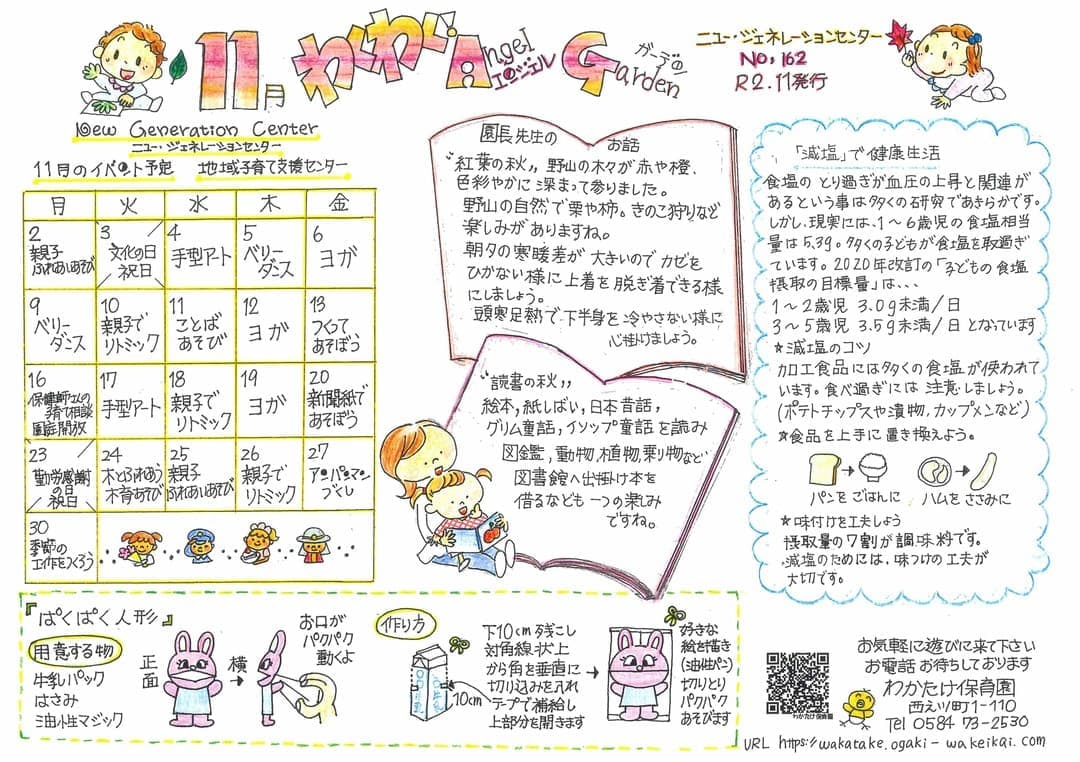 11月 わくわく Angel エンジェル Garden ガーデン
ニュー・ジェネレーションセンター
No,162
R2.11発行
New Generation Center
ニュー・ジェネレーションセンター
11月のイベント予定 地域子育て支援センター
月 火 水 木 金
2 親子ふれあいあそび
3 文化の日 祝日
4 手型アート
5 ベリーダンス
6 ヨガ
9 ベリーダンス
10 親子でリトミック
11 ことばあそび
12 ヨガ
13 つくってあそぼう
16 保健師さんの子育て相談 園庭開放
17 手型アート
18 親子でリトミック
19 ヨガ
20 新聞紙であそぼう
23 勤労感謝の日 祝日
24 木とふれあう木育あそび
25 親子ふれあいあそび
26 親子でリトミック
27 アンパンマンづくし
30 季節の工作をつくろう
園長先生の お話
"紅葉の秋,, 野山の木々が赤や橙、
色彩やかに深まって参りました。
野山の自然で栗や柿。きのこ狩りなど
楽しみがありますね。
朝夕の寒暖差が大きいのでカゼを
ひかない様に上着を脱ぎ着できる様
にしましょう。
頭寒足熱で下半身を冷やさない様に
心掛けましょう。
"読書の秋,,
絵本,紙しばい,日本昔話,
グリム童話,イソップ童話を読み
図鑑,動物,植物,乗り物など
図書館へ出掛け本を
借るなども一つの楽しみ
ですね。
「減塩」で健康生活
食塩のとり過ぎが血圧の上昇と関連が
あるという事は多くの研究であきらかです。
しかし、現実には、1〜6歳児の食塩相当
量は5.3g。多くの子どもが食塩を取過ぎ
ています。2020年改訂の「子どもの食塩
摂取の目標量」は、、、
1〜2歳児 3.0g未満/日
3〜5歳児 3.5g未満/日 となっています
★減塩のコツ
加工食品には多くの食塩が使われて
います。食べ過ぎには注意しましょう。
(ポテトチップスや漬物,カップメンなど)
★食品を上手に置き換えよう。
パンをごはんに ハムをささみに
★味付けを工夫しよう
摂取量の7割が調味料です。
減塩のためには、味つけの工夫が
大切です。
『ぱくぱく人形』
用意する物
牛乳パック
はさみ
油性マジック
正面
横
お口が
パクパク
動くよ
作り方
牛乳
10cm
下10cm残こし
対角線状上
から角を垂直に
切り込みを入れ
テープで補給し
上部分を開きます
好きな
絵を描き
(油性ペン)
切りとり
パクパク
あそびます
わかたけ保育園
お気軽に遊びに来て下さい
お電話お待ちしております
わかたけ保育園
西えつ町1-110
Tel 0584 73-2530
URL https://wakatake.ogaki-wakeikai.com